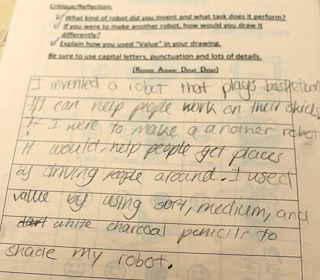 Critique/Reflection:
What kind of robot did you invent and what task does it perform?
If you were to make another robot, how would you draw it
differently?
Explain how you used "Value" in your drawing.
Be sure to use capital letters, punctuation and lots of details.
(Restate Answer Detail Detail)
I invented a robot that plays basketball
It can help people work on their skills
If I were to make a another robot
it would help people get places
as driving people around. I used
value by using soft, medium, and
white charcoal penicils to
shade my robot.